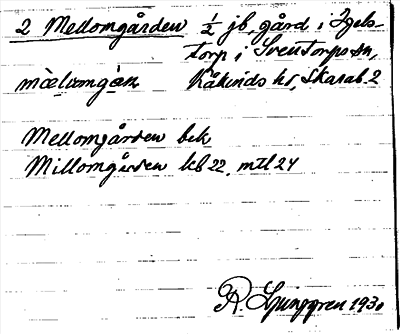 2 Mellomgården ½ jb, gård i Igels-
torp i Sventorps sn,
mæ̀lomgàn Kåkinds hd, Skarab. 2
Mellomgården bek
Millomgården kb 22, mtl 24
R. Ljunggren 1930